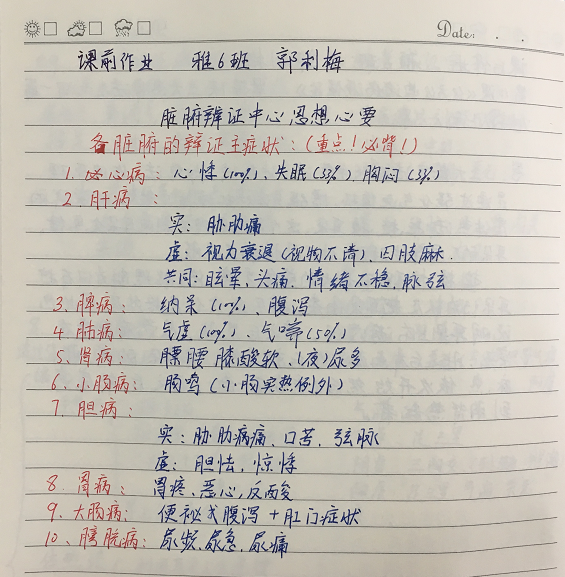 Date: . .
课前作业 雅6班 郭利梅
脏腑辨证中心思想心要
各脏腑的辨证主症状:(重点!必背!)
1. 心病: 心悸(100%)、失眠(53%)、胸闷(3%)
2. 肝病:
实: 胁肋痛
虚: 视力衰退(视物不清)、四肢麻.
共同: 眩晕、头痛、情绪不稳、脉弦
3. 脾病: 纳呆(10%)、腹泻
4. 肺病: 气虚(10%)、气喘(50%)
5. 肾病: 腰膝酸软、(夜)尿多
6. 小肠病: 肠鸣(小肠实热例外)
7. 胆病:
实: 胁肋病痛、口苦、弦脉
虚: 胆怯、惊悸
8. 胃病: 胃疼、恶心、反酸
9. 大肠病: 便秘或腹泻 + 肛门症状
10、膀胱病: 尿频、尿急、尿痛